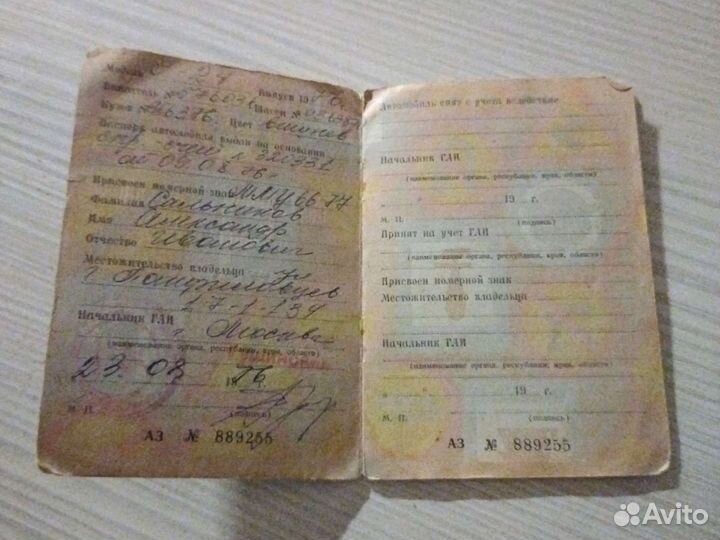 Модель 24 Выпуск 19
Двигатель № Шасси №
Кузов № 26276 Цвет
Паспорт автомобиля выдан на основании
спр-счет 320331
09.08.76
Присвоен номерной знак ММУ 66-77
Фамилия Сальников
Имя Александр
Отчество Иванович
Местожительство владельца ул
г. Панфиловцев
17-1-139
Начальник ГАИ г. Москва
(наименование органа, республики, края, области)
23. 08 1976
М. П. (подпись)
АЗ № 889255
Автомобиль снят с учета вследствие
Начальник ГАИ
(наименование органа, республики, края, области)
" " 19 г.
М. П. (подпись)
Принят на учет ГАИ
(наименование органа, республики, края, области)
Присвоен номерной знак
Местожительство владельца
Начальник ГАИ
(наименование органа, республики, края, области)
" " 19 г.
М. П. (подпись)
АЗ № 889255
Avito